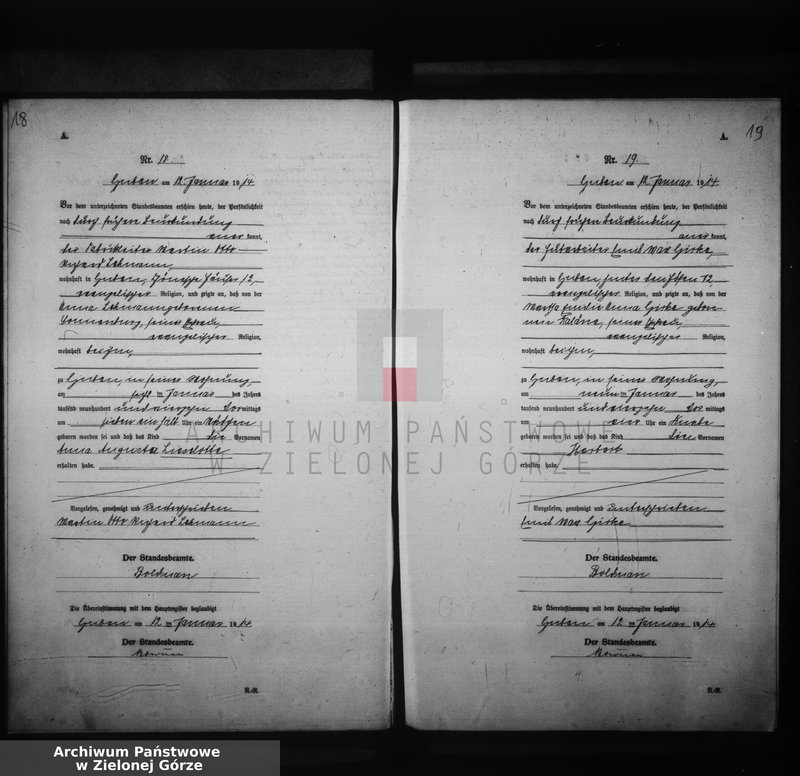 18
A.
Nr. 18.
Guben am 12. Januar 1914.
Vor dem unterzeichneten Standesbeamten erschien heute, der Persönlichkeit
nach durch frühere Beurkundung
aner kannt,
der Fabrikarbeiter Martin Otto
Richard Lehmann,
wohnhaft in Guben, 12,
evangelischer Religion, und zeigte an, daß von der
Anna Lehmann geborenen
Sonnenburg, seiner Ehefrau,
evangelischer Religion,
wohnhaft bei ihm,
zu Guben, in seiner Wohnung,
am Januar des Jahres
tausend neunhundert und vierzehn Vormittags
um sieben ein halb Uhr ein Mädchen
geboren worden sei und daß das Kind die Vornamen
Anna Augusta Liselotte
erhalten habe.
Vorgelesen, genehmigt und unterschrieben
Martin Otto Richard Lehmann
Der Standesbeamte.
Boldman
Die Übereinstimmung mit dem Hauptregister beglaubigt
Guben am 12. Januar 1914
Der Standesbeamte.
19
A.
Nr. 19.
Guben am 12. Januar 1914.
Vor dem unterzeichneten Standesbeamten erschien heute, der Persönlichkeit
nach durch frühere Beurkundung
aner kannt,
der Hutarbeiter Emil Max Girke,
wohnhaft in Guben, hinter den Höfen 52
evangelischer Religion, und zeigte an, daß von der
Martha Emilie Anna Girke gebore
nen seiner Ehefrau,
evangelischer Religion,
wohnhaft bei ihm,
zu Guben, in seiner Wohnung,
am neunten Januar des Jahres
tausend neunhundert und vierzehn Vor mittags
um vier Uhr ein Knabe
geboren worden sei und daß das Kind den Vornamen
Herbert
erhalten habe.
Vorgelesen, genehmigt und unterschrieben
Emil Max Girke
Der Standesbeamte.
Boldman
Die Übereinstimmung mit dem Hauptregister beglaubigt
Guben am 12. Januar 1914
Der Standesbeamte.
ARCHIWUM PAŃSTWOWE
W ZIELONEJ GÓRZE
Archiwum Państwowe
w Zielonej Górze